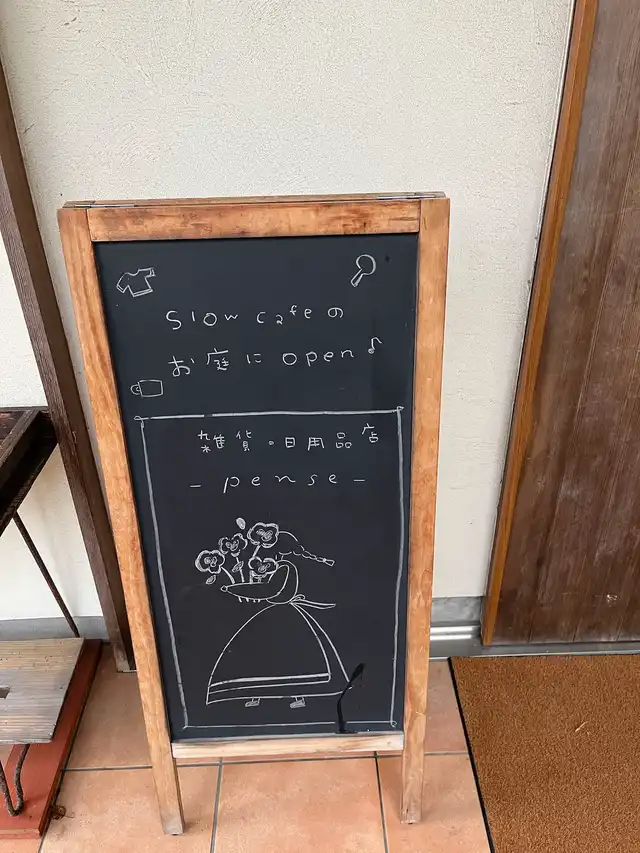 Slow cafeの
お庭に open♪
雑貨・日用品店
- pense -